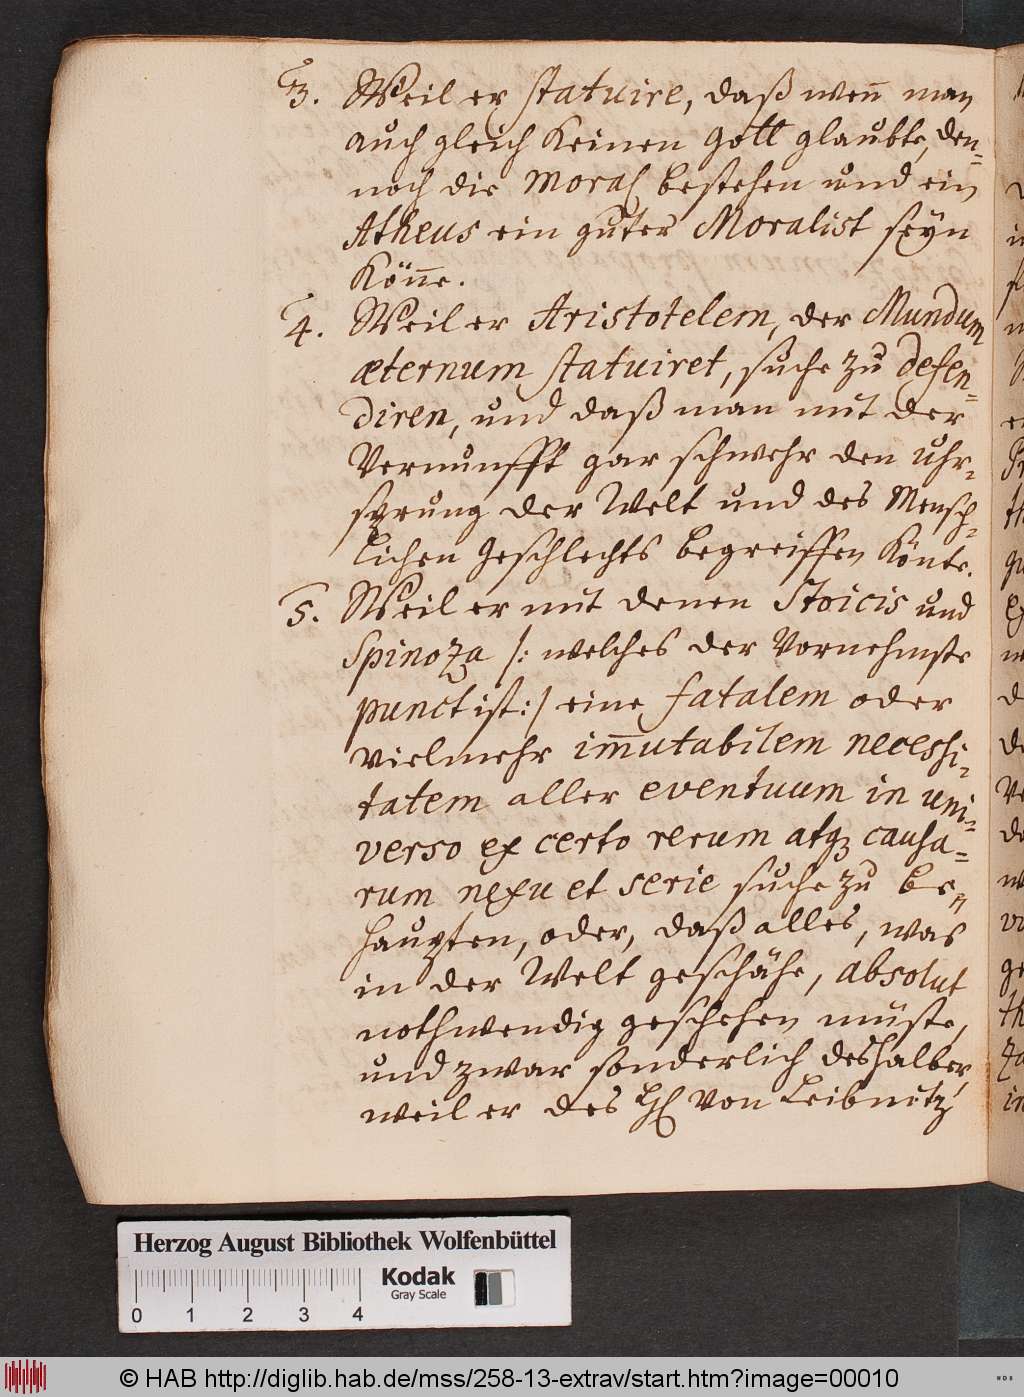 3. Weil er statuire, daß weñ man
auch gleich keinen Gott glaubte, den-
noch die Moral bestehen und ein
Atheus ein guter Moralist seyn
köñe.
4. Weil er Aristotelem, der Mundum
æternum statuiret, suche zu defen-
diren, und daß man mit der
Vernunfft gar schwehr den Uhr-
sprung der Welt und des Mensch-
lichen Geschlechts begreiffen könte.
5. Weil er mit denen Stoicis und
Spinoza /: welches der Vornehmste
punct ist :/ eine fatalem oder
vielmehr im̃utabilem necessi-
tatem aller eventuum in uni-
verso ex certo rerum atqꝫ causa-
rum nexu et serie suche zu be-
haupten, oder, daß alles, was
in der Welt geschähe, absolut
nothwendig geschehen müste,
und zwar sonderlich deshalber,
weil er des H. von Leibnitz
Herzog August Bibliothek Wolfenbüttel
Kodak
Gray Scale
0 1 2 3 4
© HAB http://diglib.hab.de/mss/258-13-extrav/start.htm?image=00010